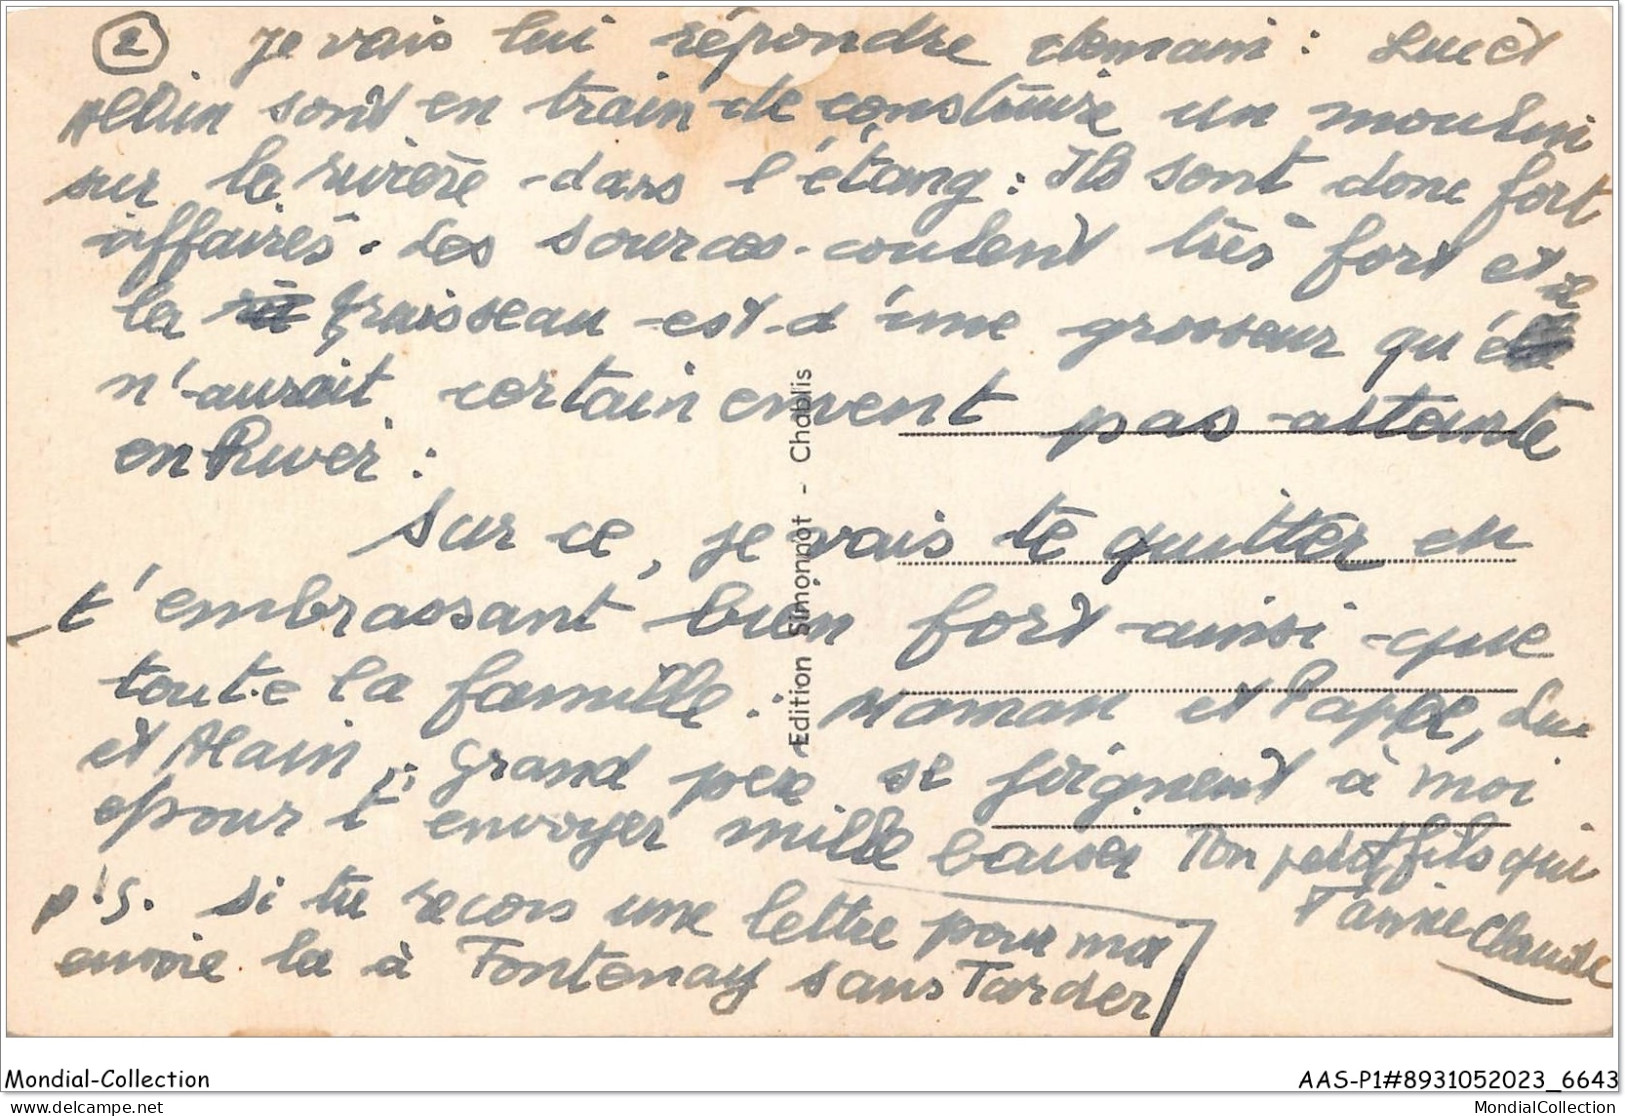 ② Je vais lui répondre demain : Luc et
Alain sont en train de construire un moulin
sur la rivière dans l'étang : Ils sont donc fort
affairés. Les sources coulent très fort et
le ruisseau est d'une grosseur qu'il
n'aurait certainement pas atteinte
en hiver :
Sur ce, je vais te quitter en
t'embrassant bien fort ainsi que
toute la famille. Maman et Papa, Luc
et Alain, grand père se joignent à moi
pour t'envoyer mille baiser Ton petit fils qui
t'aime Claude
p.S. si tu recois une lettre pour moi
envoie la à Fontenay sans Tarder
Edition Simonnot - Chablis
Mondial-Collection
AAS-P1#8931052023_6643
delcampe.net
MondialCollection